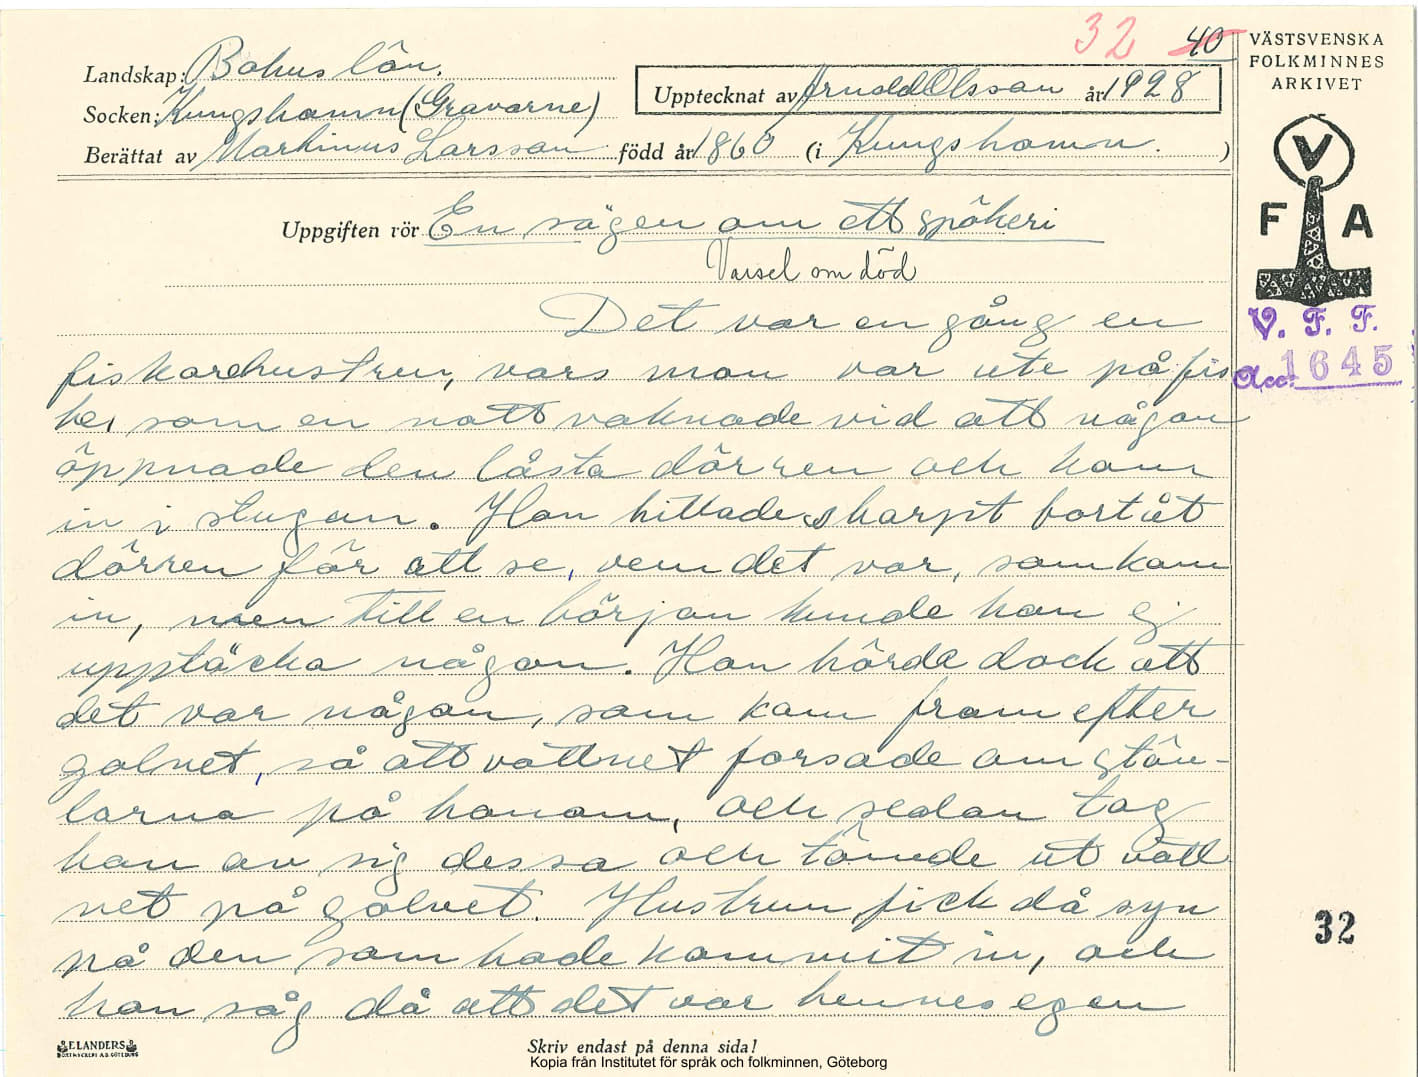 32 40
Landskap: Bohuslän.
Socken: Kungshamn (Gravarne)
Upptecknat av Arnold Olsson år 1928
Berättat av Martinus Larsson född år 1860 (i Kungshamn.)
Uppgiften rör En sägen om ett spökeri
Varsel om död
Det var en gång en
fiskarehustru, vars man var ute på fis
ke, som en natt vaknade vid att någon
öppnade den låsta dörren och kom
in i stugan. Hon tittade skarpt bortåt
dörren för att se, vem det var, som kom
in, men till en början kunde hon ej
upptäcka någon. Hon hörde dock att
det var någon, som kom fram efter
golvet, så att vattnet forsade om stöv-
larna på honom, och sedan tog
han av sig dessa och tömde ut vatt
net på golvet. Hustrun fick då syn
på den som hade kommit in, och
hon såg då att det var hennes egen
VÄSTSVENSKA
FOLKMINNES
ARKIVET
V
F A
V. F. F.
Acc. 1645
32
ELANDERS
BOKTRYCKERI A.B. GÖTEBORG
Skriv endast på denna sida!
Kopia från Institutet för språk och folkminnen, Göteborg